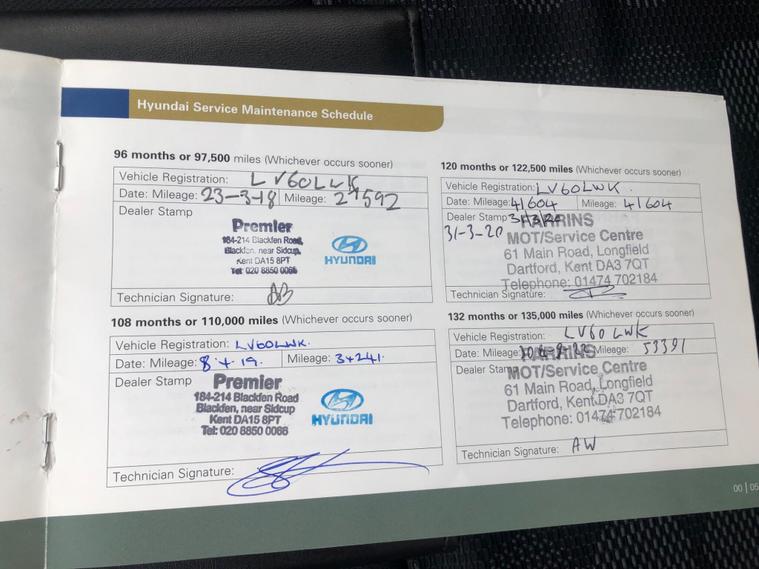 Hyundai Service Maintenance Schedule
96 months or 97,500 miles (Whichever occurs sooner)
Vehicle Registration: LV60LWK
Date: Mileage: 23-3-18 Mileage: 27592
Dealer Stamp
Premier
184-214 Blackfen Road,
Blackfen, near Sidcup,
Kent DA15 8PT
Tel: 020 8850 0066
HYUNDAI
Technician Signature:
108 months or 110,000 miles (Whichever occurs sooner)
Vehicle Registration: LV60LWK.
Date: Mileage: 8.4.19. Mileage: 34241.
Dealer Stamp
Premier
184-214 Blackfen Road
Blackfen, near Sidcup
Kent DA15 8PT
Tel: 020 8850 0066
HYUNDAI
Technician Signature:
120 months or 122,500 miles (Whichever occurs sooner)
Vehicle Registration: LV60LWK.
Date: Mileage: 41604 Mileage: 41604
Dealer Stamp 31/3/20
31-3-20
MOT/Service Centre
61 Main Road, Longfield
Dartford, Kent DA3 7QT
Telephone: 01474 702184
Technician Signature:
132 months or 135,000 miles (Whichever occurs sooner)
Vehicle Registration: LV60 LWK
Date: Mileage: Mileage: 53391
Dealer Stamp
MOT/Service Centre
61 Main Road, Longfield
Dartford, Kent DA3 7QT
Telephone: 01474 702184
Technician Signature: AW
00 | 05